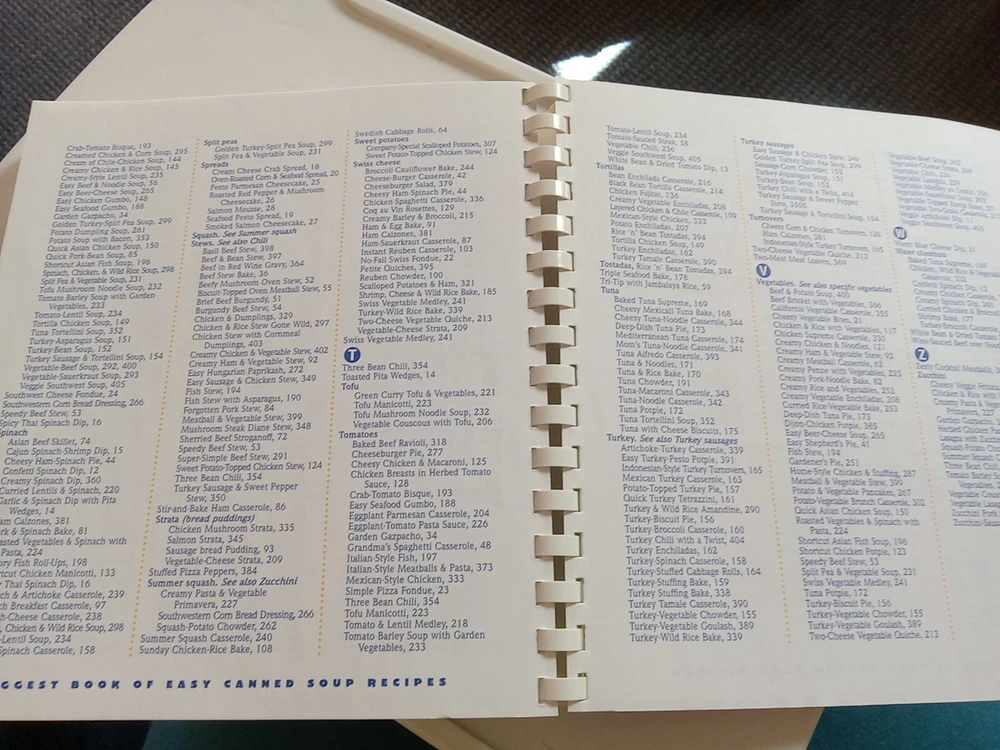 Crab-Tomato Bisque, 193
Creamed Chicken & Corn Soup, 295
Cream of Chile-Chicken Soup, 144
Creamy Chicken & Rice Soup, 145
Creamy-Style Lentil Soup, 235
Easy Beef & Noodle Soup, 56
Easy Beer-Cheese Soup, 265
Easy Chicken Gumbo, 148
Easy Seafood Gumbo, 188
Garden Gazpacho, 34
Golden Turkey-Split Pea Soup, 299
Potato Dumpling Soup, 261
Potato Soup with Bacon, 353
Quick Asian Chicken Soup, 150
Quick Pork-Bean Soup, 85
Shortcut Asian Fish Soup, 196
Spinach, Chicken, & Wild Rice Soup, 298
Split Pea & Vegetable Soup, 231
Tofu Mushroom Noodle Soup, 232
Tomato Barley Soup with Garden
Vegetables, 233
Tomato-Lentil Soup, 234
Tortilla Chicken Soup, 149
Tuna Tortellini Soup, 352
Turkey-Asparagus Soup, 151
Turkey-Bean Soup, 152
Turkey Sausage & Tortellini Soup, 154
Vegetable-Beef Soup, 292, 400
Vegetable-Sauerkraut Soup, 293
Veggie Southwest Soup, 405
Southwest Cheese Fondue, 24
Southwestern Corn Bread Dressing, 266
Speedy Beef Stew, 53
Spicy Thai Spinach Dip, 16
Spinach
Asian Beef Skillet, 74
Cajun Spinach-Shrimp Dip, 15
Cheesy Ham-Spinach Pie, 44
Confetti Spinach Dip, 12
Creamy Spinach Dip, 360
Curried Lentils & Spinach, 220
Garlic & Spinach Dip with Pita
Wedges, 14
Calzones, 381
& Spinach Bake, 81
Vegetables & Spinach with
Pasta, 224
Fish Roll-Ups, 198
Chicken Manicotti, 133
Thai Spinach Dip, 16
& Artichoke Casserole, 239
Breakfast Casserole, 97
Cheese Casserole, 238
Chicken & Wild Rice Soup, 298
Lentil Soup, 234
Spinach Casserole, 158
Split peas
Golden Turkey-Split Pea Soup, 299
Split Pea & Vegetable Soup, 231
Spreads
Cream Cheese Crab Spread, 18
Oven-Roasted Corn & Seafood Spread, 20
Pesto Parmesan Cheesecake, 25
Roasted Red Pepper & Mushroom
Cheesecake, 26
Salmon Mousse, 28
Seafood Pesto Spread, 19
Smoked Salmon Cheesecake, 27
Squash. See Summer squash
Stews. See also Chili
Basil Beef Stew, 398
Beef & Bean Stew, 397
Beef in Red Wine Gravy, 364
Beef Stew Bake, 36
Beefy Mushroom Oven Stew, 52
Biscuit-Topped Oven Meatball Stew, 55
Brief Beef Burgundy, 51
Burgundy Beef Stew, 54
Chicken & Dumplings, 329
Chicken & Rice Stew Gone Wild, 297
Chicken Stew with Cornmeal
Dumplings, 403
Creamy Chicken & Vegetable Stew, 402
Creamy Ham & Vegetable Stew, 92
Easy Hungarian Paprikash, 272
Easy Sausage & Chicken Stew, 349
Fish Stew, 194
Fish Stew with Asparagus, 190
Forgotten Pork Stew, 84
Meatball & Vegetable Stew, 399
Mushroom Steak Diane Stew, 348
Sherried Beef Stroganoff, 72
Speedy Beef Stew, 53
Super-Simple Beef Stew, 291
Sweet Potato-Topped Chicken Stew, 124
Three Bean Chili, 354
Turkey Sausage & Sweet Pepper
Stew, 350
Stir-and-Bake Ham Casserole, 86
Strata (bread puddings)
Chicken Mushroom Strata, 335
Salmon Strata, 345
Sausage bread Pudding, 93
Vegetable-Cheese Strata, 209
Stuffed Pizza Peppers, 384
Summer squash. See also Zucchini
Creamy Pasta & Vegetable
Primavera, 227
Southwestern Corn Bread Dressing, 266
Squash-Potato Chowder, 262
Summer Squash Casserole, 240
Sunday Chicken-Rice Bake, 108
Swedish Cabbage Rolls, 64
Sweet potatoes
Company-Special Scalloped Potatoes, 307
Sweet Potato-Topped Chicken Stew, 124
Swiss cheese
Broccoli-Cauliflower Bake, 244
Cheese-Burger Casserole, 42
Cheeseburger Salad, 379
Cheesy Ham-Spinach Pie, 44
Chicken-Spaghetti Casserole, 336
Coq au Vin Rosettes, 129
Creamy Barley & Broccoli, 215
Ham & Egg Bake, 91
Ham Calzones, 381
Ham-Sauerkraut Casserole, 87
Instant Reuben Casserole, 103
No-Fail Swiss Fondue, 22
Petite Quiches, 395
Reuben Chowder, 100
Scalloped Potatoes & Ham, 321
Shrimp, Cheese & Wild Rice Bake, 185
Swiss Vegetable Medley, 241
Turkey-Wild Rice Bake, 339
Two-Cheese Vegetable Quiche, 213
Vegetable-Cheese Strata, 209
Swiss Vegetable Medley, 241
T
Three Bean Chili, 354
Toasted Pita Wedges, 14
Tofu
Green Curry Tofu & Vegetables, 221
Tofu Manicotti, 223
Tofu Mushroom Noodle Soup, 232
Vegetable Couscous with Tofu, 206
Tomatoes
Baked Beef Ravioli, 318
Cheeseburger Pie, 277
Cheesy Chicken & Macaroni, 125
Chicken Breasts in Herbed Tomato
Sauce, 128
Crab-Tomato Bisque, 193
Easy Seafood Gumbo, 188
Eggplant Parmesan Casserole, 204
Eggplant-Tomato Pasta Sauce, 226
Garden Gazpacho, 34
Grandma's Spaghetti Casserole, 48
Italian-Style Fish, 197
Italian-Style Meatballs & Pasta, 373
Mexican-Style Chicken, 333
Simple Pizza Fondue, 23
Three Bean Chili, 354
Tofu Manicotti, 223
Tomato & Lentil Medley, 218
Tomato Barley Soup with Garden
Vegetables, 233
GGEST BOOK OF EASY CANNED SOUP RECIPES
Tomato-Lentil Soup, 234
Tomato-Sauced Steak, 58
Vegetable Chili, 236
Veggie Southwest Soup, 405
White Bean & Dried Tomato Dip, 13
Tortillas
Bean Enchilada Casserole, 216
Black Bean Tortilla Casserole, 214
Chicken Fajitas, 136
Creamy Vegetable Enchiladas, 208
Layered Chicken & Chile Casserole, 109
Mexican-Style Chicken, 333
Potato Enchiladas, 207
Rice 'n' Bean Tostadas, 394
Tortilla Chicken Soup, 149
Turkey Enchiladas, 162
Turkey Tamale Casserole, 390
Tostadas, Rice 'n' Bean Tostadas, 394
Triple Seafood Bake, 178
Tri-Tip with Jambalaya Rice, 59
Tuna
Baked Tuna Supreme, 169
Cheesy Mexicali Tuna Bake, 168
Cheesy Tuna-Noodle Casserole, 344
Deep-Dish Tuna Pie, 173
Mediterranean Tuna Casserole, 174
Mom's Tuna-Noodle Casserole, 341
Tuna Alfredo Casserole, 393
Tuna & Noodles, 171
Tuna & Rice Bake, 170
Tuna Chowder, 191
Tuna-Macaroni Casserole, 343
Tuna-Noodle Casserole, 342
Tuna Potpie, 172
Tuna Tortellini Soup, 352
Tuna with Cheese Biscuits, 175
Turkey. See also Turkey sausages
Artichoke-Turkey Casserole, 339
Easy Turkey-Pesto Potpie, 391
Indonesian-Style Turkey Turnovers, 165
Mexican Turkey Casserole, 163
Potato-Topped Turkey Pie, 157
Quick Turkey Tetrazzini, 161
Turkey & Wild Rice Amandine, 290
Turkey-Biscuit Pie, 156
Turkey-Broccoli Casserole, 160
Turkey Chili with a Twist, 404
Turkey Enchiladas, 162
Turkey-Spinach Casserole, 158
Turkey-Stuffed Cabbage Rolls, 164
Turkey-Stuffing Bake, 159
Turkey Stuffing Bake, 338
Turkey Tamale Casserole, 390
Turkey-Vegetable Chowder, 155
Turkey-Vegetable Goulash, 389
Turkey-Wild Rice Bake, 339
Turkey sausages
Easy Sausage & Chicken Stew, 349
Golden Turkey-Split Pea Soup, 299
Sausage-Corn Chowder, 153
Turkey-Asparagus Soup, 151
Turkey-Bean Soup, 152
Turkey Chili with a Twist, 404
Turkey Sausage & Sweet Pepper
Stew, 350
Turkey Sausage & Tortellini Soup, 154
Turnovers
Cheesy Corn & Chicken Turnovers, 126
Ham Calzones, 381
Indonesian-Style Turkey Turnovers, 165
Two-Cheese Vegetable Quiche, 213
Two-Meat Meat Loaves, 369
V
Vegetables. See also specific vegetables
Beef & Potato Soup, 400
Beef Brisket with Vegetables, 366
California Vegetable Casserole, 355
Cheesy Vegetable Bites, 21
Chicken & Rice with Vegetables, 117
Chicken Supreme Casserole, 330
Creamy Chicken & Noodles, 121
Creamy Ham & Vegetable Stew, 92
Creamy Pasta & Vegetable Primavera, 227
Creamy Penne with Vegetables, 225
Creamy Pork-Noodle Bake, 82
Creamy Rice and Vegetables, 252
Creamy Vegetable Enchiladas, 208
Curried Rice-Vegetable Bake, 253
Deep-Dish Tuna Pie, 173
Dijon-Chicken Potpie, 385
Easy Beer-Cheese Soup, 265
Easy Shepherd's Pie, 41
Fish Stew, 194
Gardener's Pie, 251
Home-Style Chicken & Stuffing, 287
Meatball & Vegetable Stew, 399
Potato & Vegetable Pancakes, 267
Potato-Vegetable Brunch Casserole, 302
Quick Asian Chicken Soup, 150
Roasted Vegetables & Spinach with
Pasta, 224
Shortcut Asian Fish Soup, 196
Shortcut Chicken Potpie, 123
Speedy Beef Stew, 53
Split Pea & Vegetable Soup, 231
Swiss Vegetable Medley, 241
Tuna Potpie, 172
Turkey-Biscuit Pie, 156
Turkey-Vegetable Chowder, 155
Turkey-Vegetable Goulash, 389
Two-Cheese Vegetable Quiche, 213
W
Warm Blue Cheese Dip, 21
Z
Zucchini